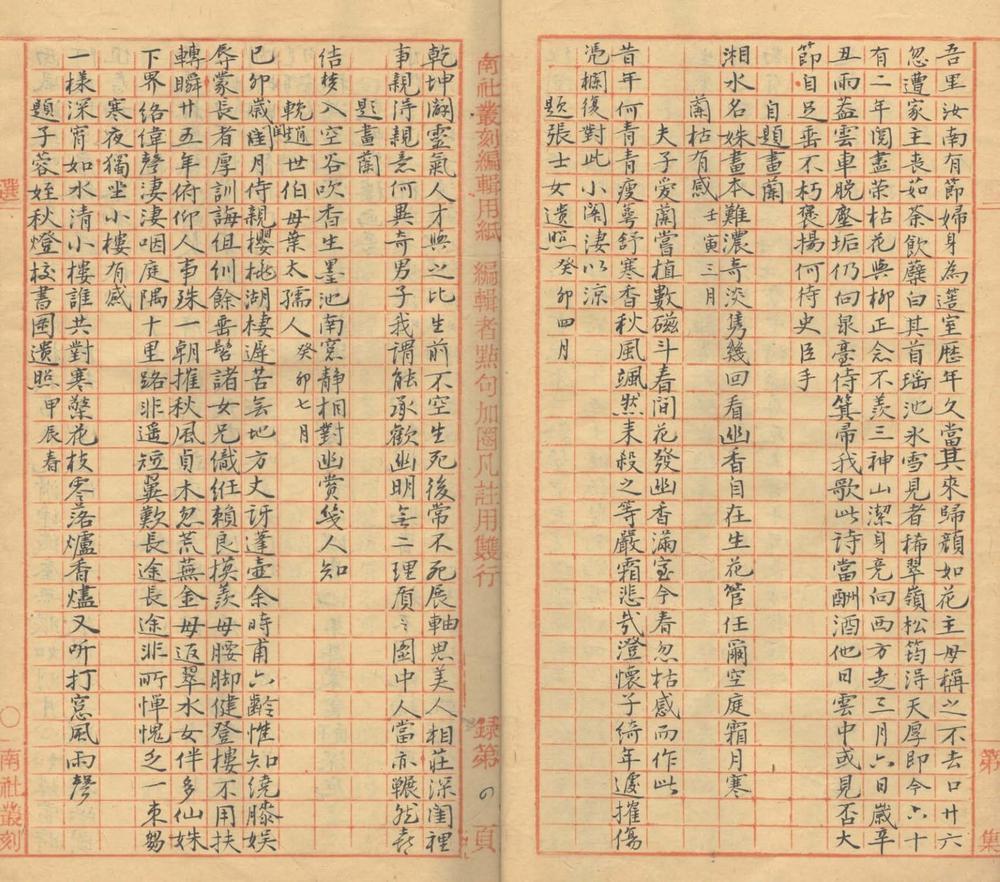 吾里汝南有節婦身為簉室歷年久當其來歸顏如花主母稱之不去口廿六
忽遭家主喪茹荼飲蘗白其首瑤池冰雪見者稀翠嶺松筠得天厚即今六十
有二年閱盡荣枯花與柳正念不羨三神山潔身竟向西方走三月六日歲辛
丑雨蓋雲車脫塵垢仍向泉臺侍箕帚我歌此詩當酬酒他日雲中或見否大
節自足垂不朽褒揚何待史臣手
自題畫蘭
湘水名姝畫本難濃奇淡雋幾回看幽香自在生花管任爾空庭霜月寒
蘭枯有感 壬寅三月
夫子愛蘭嘗植數磁斗春間花發幽香滿室今春忽枯感而作此
昔年何青青瘦萼舒寒香秋風颯然来殺之等嚴霜悲哉澄懷子綺年遽摧傷
憑欄復對此小闌淒以涼
題張士女遺照 癸卯四月
南社叢刻編輯用紙 編輯者點句加圈凡註用雙行
錄第 の 頁
乾坤闢靈氣人才與之比生前不空生死後常不死展軸思美人相莊深閨裡
事親得親意何異奇男子我謂能承歡幽明無二理質之圖中人當亦囅然喜
題畫蘭
佶枝入空谷吹香生墨池南窗靜相對幽賞幾人知
輓趙世伯母葉太孺人 癸卯七月
己卯歲閏月侍親櫻桃湖棲遲苦無地方丈訝蓬壺余時甫六齡惟知繞膝娛
辱蒙長者厚訓誨俱侧餘垂髫諸女兄儀紝賴良模羨母腰脚健登樓不用扶
轉瞬廿五年俯仰人事殊一朝摧秋風貞木忽荒蕪金母返翠水女伴多仙姝
下界絡偉聲淒淒咽庭隅十里路非遥短翼歎長途長途非所憚愧乏一束芻
寒夜獨坐小樓有感
一樣深宵如水清小樓誰共對寒檠花枝零落爐香燼又听打窻風雨聲
題子蓉姪秋燈校書圖遺照 甲辰春
選
南社叢刻
第
集